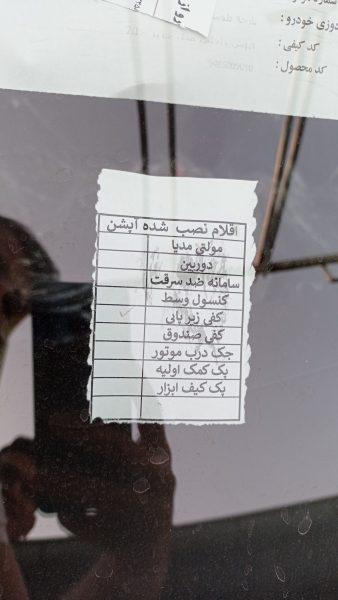 روا
شماره
دوزی خودرو :
کد کیفی :
کد محصول :
اقلام نصب شده آپشن
مولتی مدیا
دوربین
سامانه ضد سرقت
کنسول وسط
کفی زیر پایی
کفی صندوق
جک درب موتور
پک کمک اولیه
پک کیف ابزار